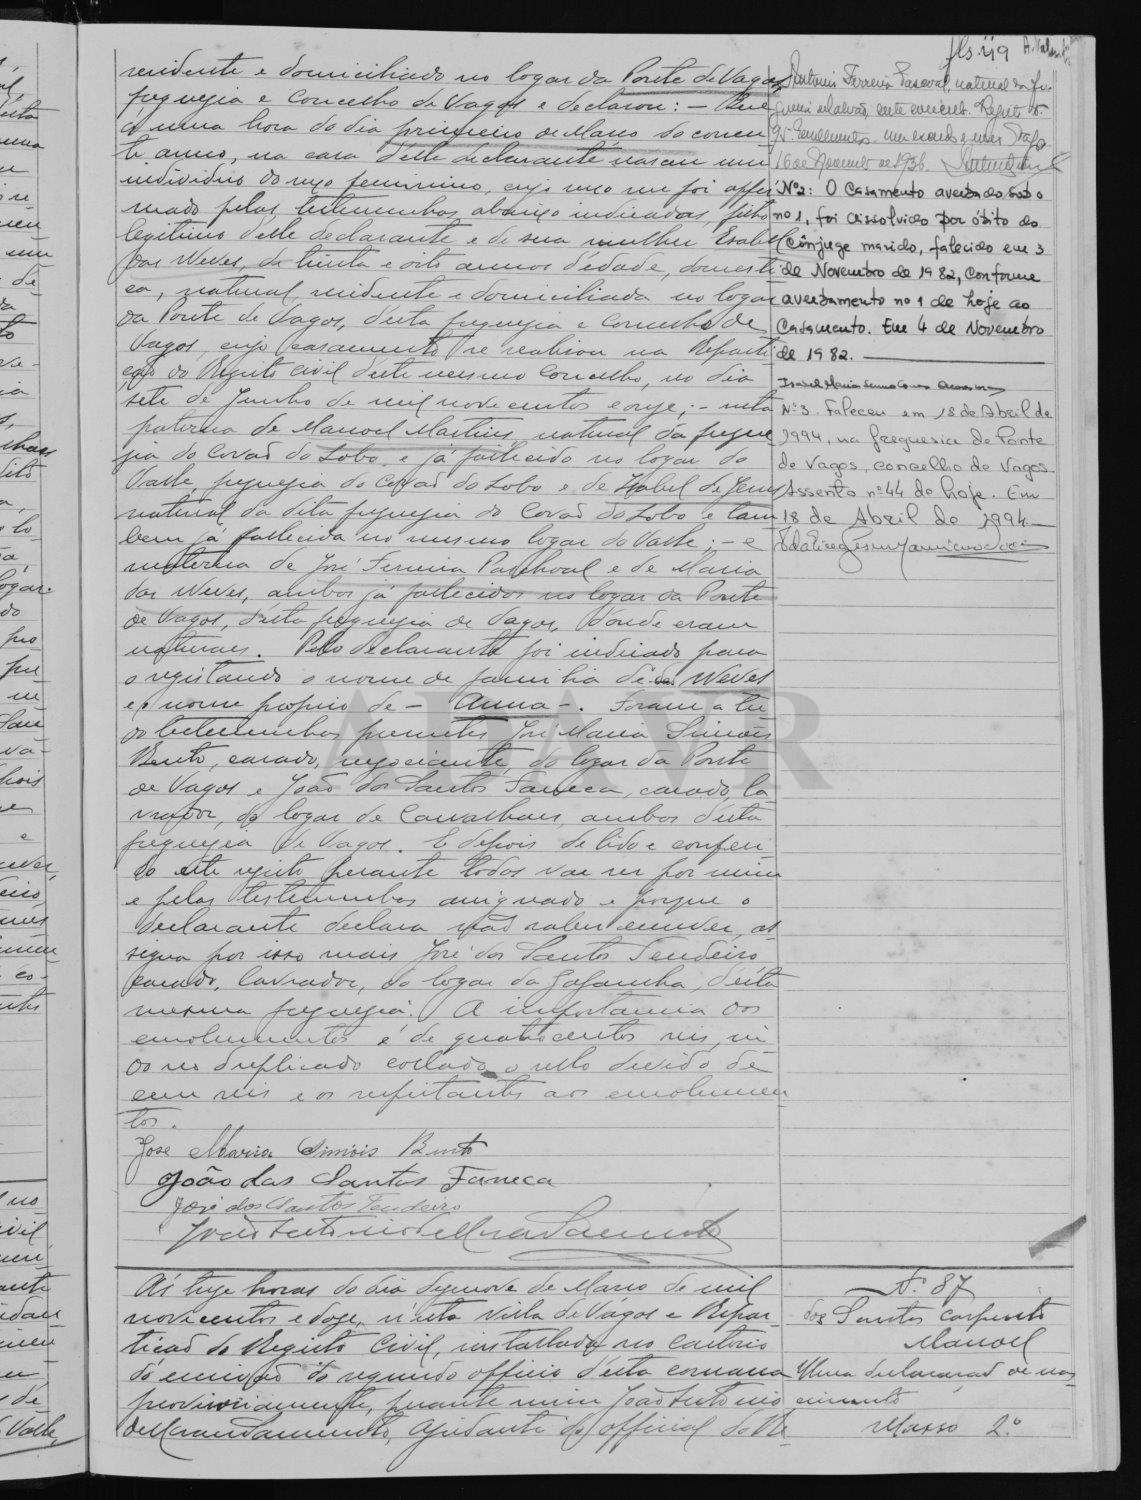 fls. 119
residente e domiciliado no logar da Ponte de Vagos,
freguezia e concelho de Vagos e declarou: – Que
á uma hora do dia primeiro de Março do corren
te anno, na casa d'elle declarante nasceu um
individuo do sexo feminino, cujo sexo me foi affir
mado pelas testemunhas abaixo indicadas, filho
legitimo d'elle declarante e de sua mulher Izabel
das Neves, de trinta e oito annos d'edade, domesti
ca, natural, residente e domiciliada no logar
da Ponte de Vagos, d'esta freguezia e concelho de
Vagos, cujo casamento se realisou na Reparti
ção do Registo Civil d'este mesmo concelho, no dia
sete de Junho de mil novecentos e onze; – neta
paterna de Manoel Martins, natural da fregue
zia do Covão do Lobo, e já fallecido no logar do
Valle, freguezia do Covão do Lobo e de Izabel de Jesus
natural da dita freguezia do Covão do Lobo e tam
bem já fallecida no mesmo logar do Valle; – e
materna de José Ferreira Paschoal e de Maria
das Neves, ambos já fallecidos no logar da Ponte
de Vagos, d'esta freguezia de Vagos, d'onde eram
naturaes. Pelo declarante foi indicado para
o registando o nome de familia de das Neves
e o nome proprio de – Anna –. Foram a tu
do testemunhas presentes José Maria Simões
Bento, casado, negociante, do logar da Ponte
de Vagos e João dos Santos Faneca, casado, la
vrador, do logar de Carvalhaes, ambos d'esta
freguezia de Vagos. E depois de lido e conferi
do este registo perante todos vae ser por mim
e pelas testemunhas assignado e porque o
declarante declara não saber escrever, as
signa por isso mais José dos Santos Tendeiro
casado, lavrador, do logar da Gafanha, d'esta
mesma freguezia. A importancia dos
emolumentos é de quatrocentos reis, in
do no duplicado collado o sello devido de
cem reis e os respeitantes aos emolumen
tos.
José Maria Simois Bento
João das Santos Faneca
José dos Santos Tendeiro
João Antonio de Moraes Sarmento
Antonio Ferreira Pascoal, natural da fre
16 de Novembro de 1936.
Nº 2: O Casamento averbado sob o
nº 1, foi dissolvido por óbito do
cônjuge marido, falecido em 3
de Novembro de 1982, Conforme
averbamento nº 1 de hoje ao
Casamento. Em 4 de Novembro
de 1982.
Isabel Maria
Nº 3. Faleceu em 18 de Abril de
1994, na freguesia de Ponte
de Vagos, concelho de Vagos.
Assento nº 44 de hoje. Em
18 de Abril de 1994.
ADAVR
Ás treze horas do dia dezenove de Março de mil
novecentos e doze, n'esta villa de Vagos e Repar-
tição do Registo Civil, installada no cartorio
do escrivão do segundo officio d'esta comarca
provisoriamente, perante mim João Antonio
de Moraes Sarmento, ajudante do official do Re-
N.º 87
dos Santos Carpinteiro
Manoel
Uma declaração de nas
cimento
Masso 2.º